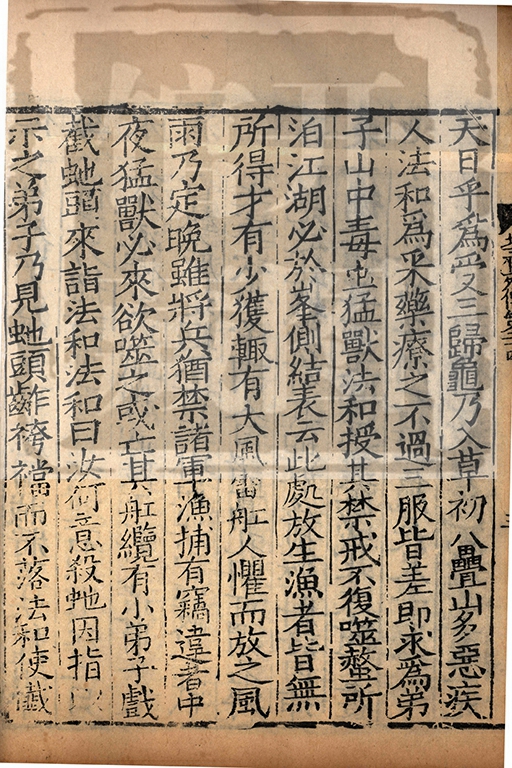 天日乎爲受三歸龜乃入草初八疊山多惡疾
人法和爲采藥療之不過三服皆差即求爲弟
子山中毒虫猛獸法和授其禁戒不復噬螫所
泊江湖必於峯側結表云此處放生漁者皆無
所得才有少獲輙有大風雷舡人懼而放之風
雨乃定晚雖將兵猶禁諸軍漁捕有竊違者中
夜猛獸必來欲噬之或亡其舡纜有小弟子戲
截虵頭來詣法和法和曰汝何意殺虵因指
示之弟子乃見虵頭齚袴襠而不落法和使懺